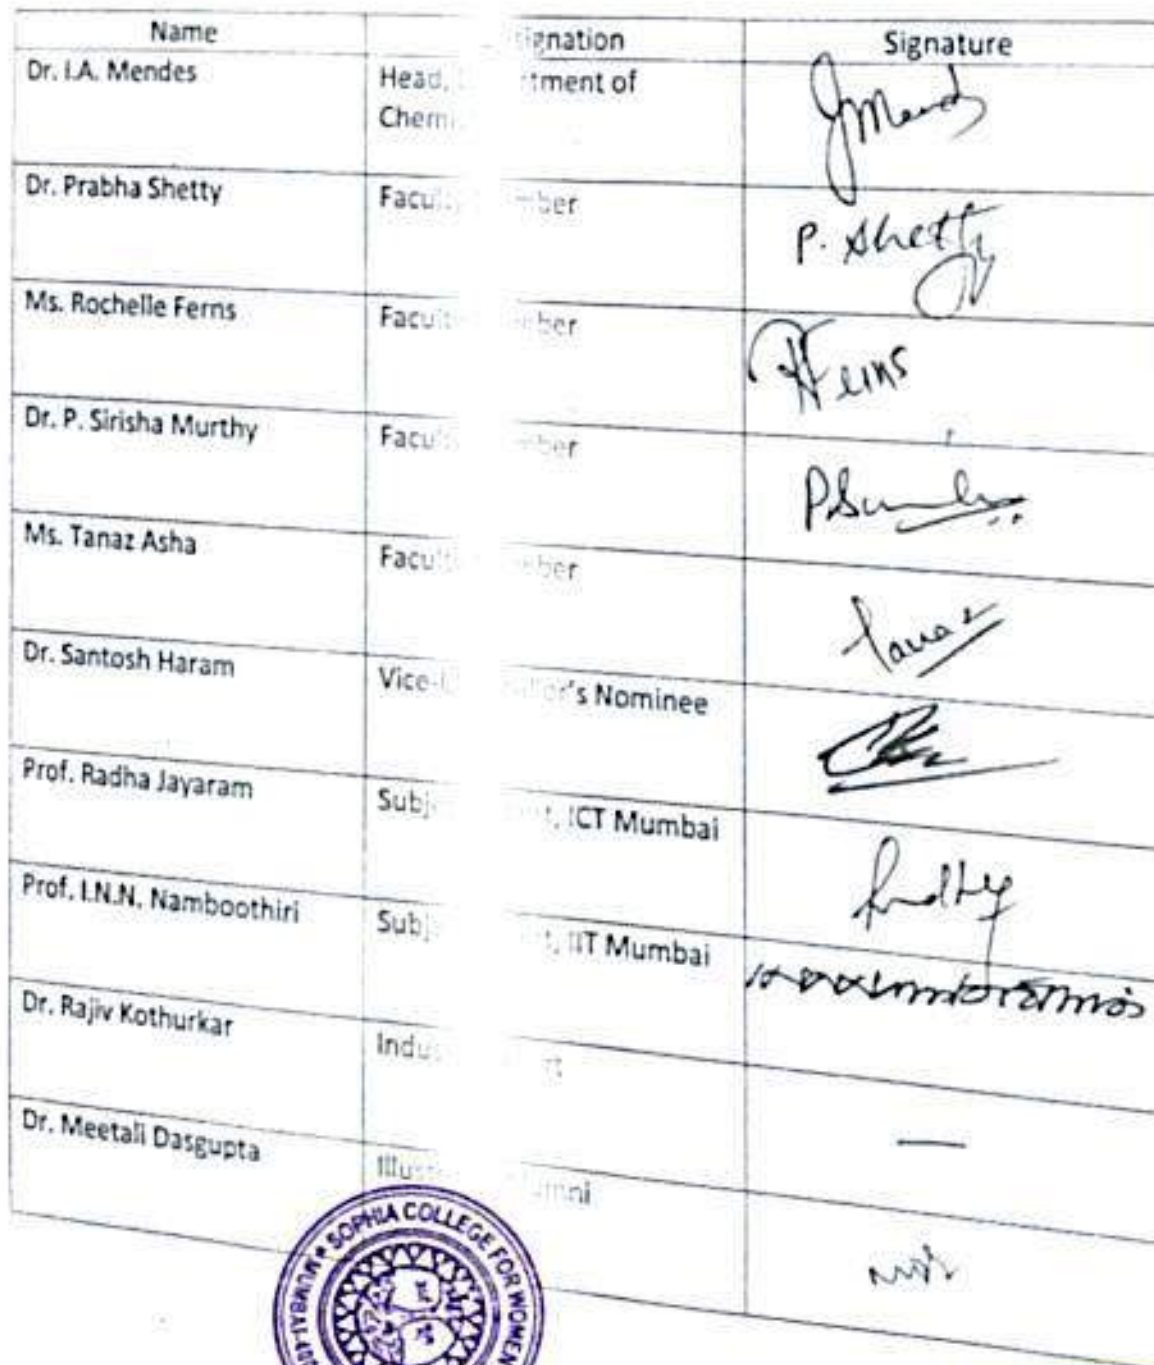 Name signation Signature
Dr. I.A. Mendes Head, tment of
Chemi
Dr. Prabha Shetty Facul mber
P. Shetty
Ms. Rochelle Ferns Facult mber
RFerns
Dr. P. Sirisha Murthy Facul mber
Ms. Tanaz Asha Facult mber
Tanaz
Dr. Santosh Haram Vice- ellor's Nominee
Prof. Radha Jayaram Subj t, ICT Mumbai
Prof. I.N.N. Namboothiri Subj t, IIT Mumbai
Dr. Rajiv Kothurkar Indus rt
—
Dr. Meetali Dasgupta Illus umni
SOPHIA COLLEGE FOR WOMEN
MUMBAI-400